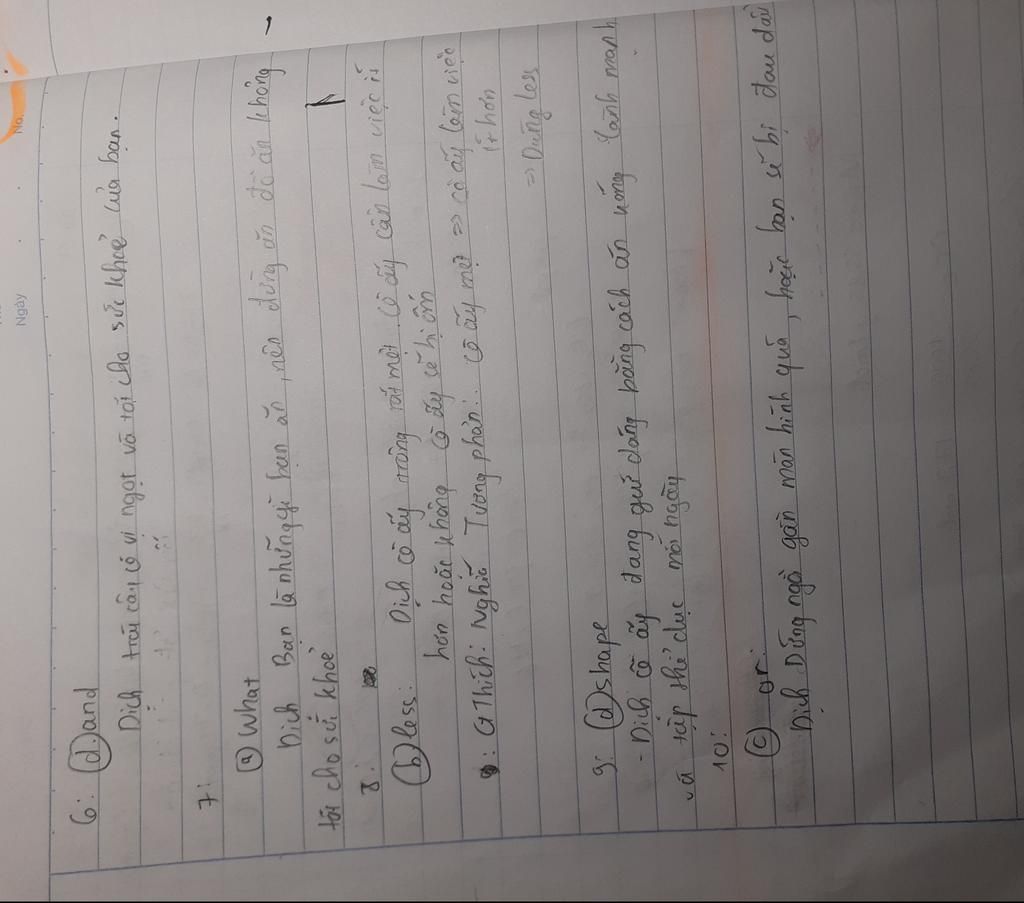 No.
Ngày
6: (d) and
Dịch trái cây có vị ngọt và tốt cho sức khoẻ của bạn.
7:
(a) What
Dịch Bạn là những gì bạn ăn, nên đừng ăn đồ ăn không
tốt cho sức khoẻ
8:
(b) less: Dịch cô ấy trông rất mệt. Cô ấy cần làm việc ít
hơn hoặc không cô ấy sẽ bị ốm
G Thích: Nghĩa Tương phản: cô ấy mệt => cô ấy làm việc
ít hơn
=> Dùng less
9: (d) shape
- Dịch cô ấy đang giữ dáng bằng cách ăn uống lành mạnh
và tập thể dục mỗi ngày
10:
(c) or:
Dịch Đừng ngồi gần màn hình quá, hoặc bạn sẽ bị đau đầu